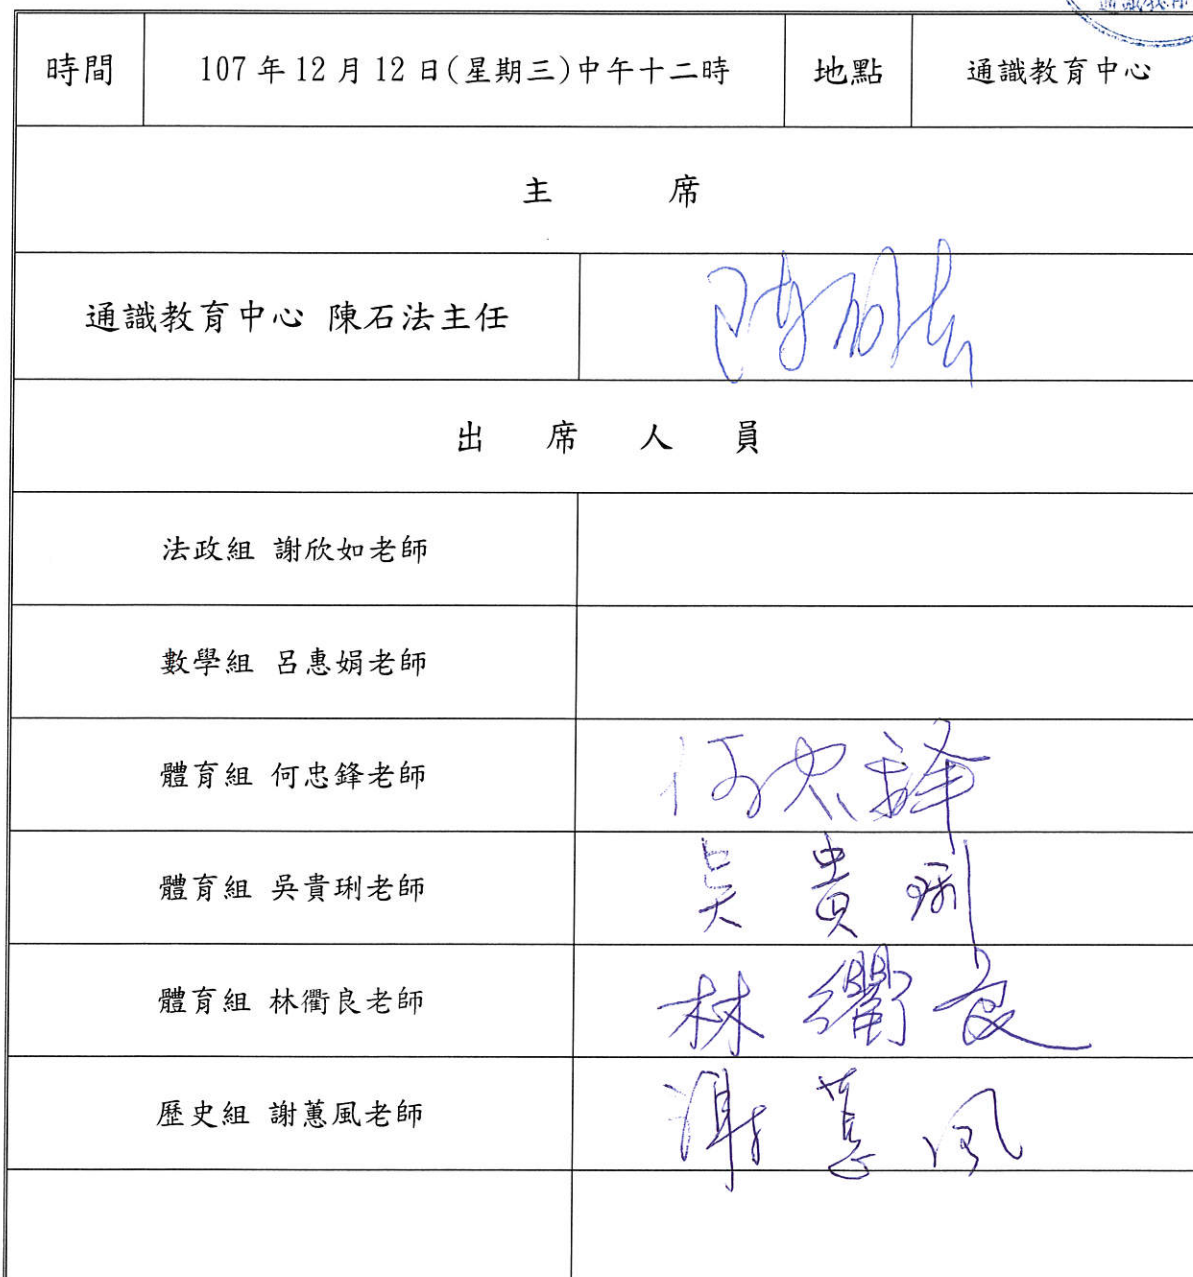 通識教育中心
時間 107年12月12日(星期三)中午十二時 地點 通識教育中心
主 席
通識教育中心 陳石法主任 陳石法
出 席 人 員
法政組 謝欣如老師
數學組 呂惠娟老師
體育組 何忠鋒老師 何忠鋒
體育組 吳貴琍老師 吳貴琍
體育組 林衢良老師 林衢良
歷史組 謝蕙風老師 謝蕙風